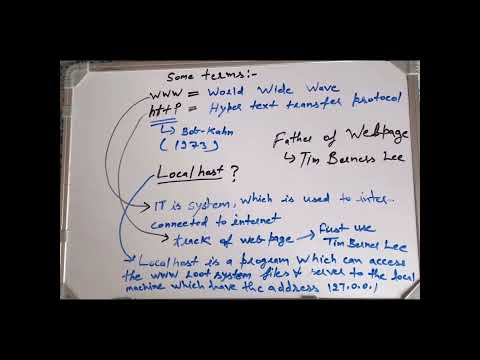 Some terms:-
WWW = World Wide Wave
http = Hyper text transfer protocol
Bob-Kahn
(1973)
Father of Webpage
Tim Berness Lee
Local host ?
IT is system, which is used to inter-
connected to internet
track of web page → first use
Tim Berner Lee
Local host is a program which can access
the www root system files & server to the local
machine which have the address 127.0.0.1